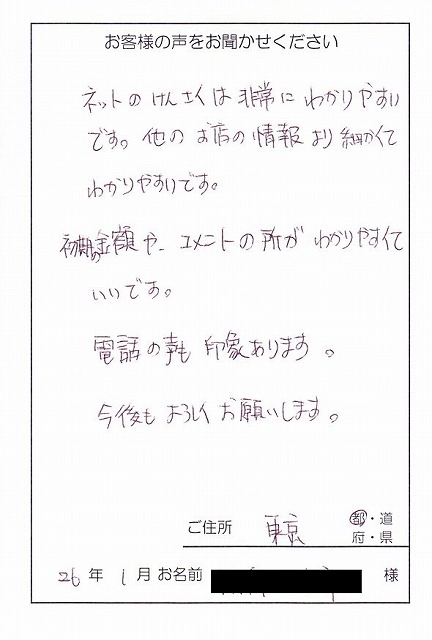 お客様の声をお聞かせください
ネットのけんさくは非常にわかりやすい
です。他のお店の情報より細かくて
わかりやすいです。
初期の金額や、コメントの所がわかりやすくて
いいです。
電話の声も印象あります。
今後もよろしくお願いします。
ご住所 東京 都・道
府・県
26年1月お名前 様